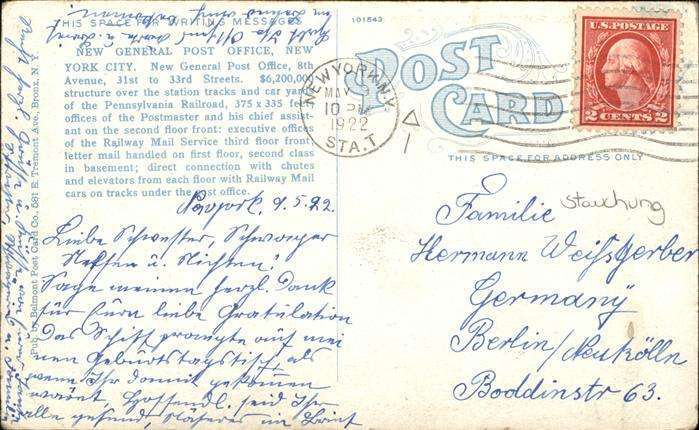 THIS SPACE FOR WRITING MESSAGES
101543
NEW GENERAL POST OFFICE, NEW
YORK CITY. New General Post Office, 8th
Avenue, 31st to 33rd Streets. $6,200,000
structure over the station tracks and car yard
of the Pennsylvania Railroad, 375 x 335 feet
offices of the Postmaster and his chief assist-
ant on the second floor front: executive offices
of the Railway Mail Service third floor front,
letter mail handled on first floor, second class
in basement; direct connection with chutes
and elevators from each floor with Railway Mail
cars on tracks under the post office.
Pub. by Belmont Post Card Co., 681 E. Tremont Ave., Bronx, N. Y.
POST
CARD
NEW YORK, N.Y.
MAY 9
10 PM
1922
STA. T
U.S. POSTAGE
2 CENTS 2
THIS SPACE FOR ADDRESS ONLY
Newyork, 9.5.22.
Liebe Schwester, Schwager
Neffen u. Nichten!
Sage meinen herzl. Dank
für Eure liebe Gratulation
Das Schiff prangte auf mei
nen Geburtstagstisch als
wenn Ihr damit gekommen
wäret, Hoffendl. seid Ihr
alle gesund, Näheres im Brief
Stauchung
Familie
Hermann Weißgerber
Germany
Berlin/Neukölln
Boddinstr 63.